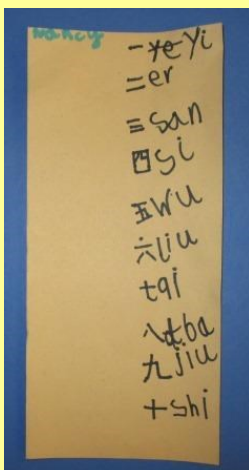 Nancy
一ye yi
二er
三san
四si
五wu
六liu
七qi
八ba
九jiu
十shi